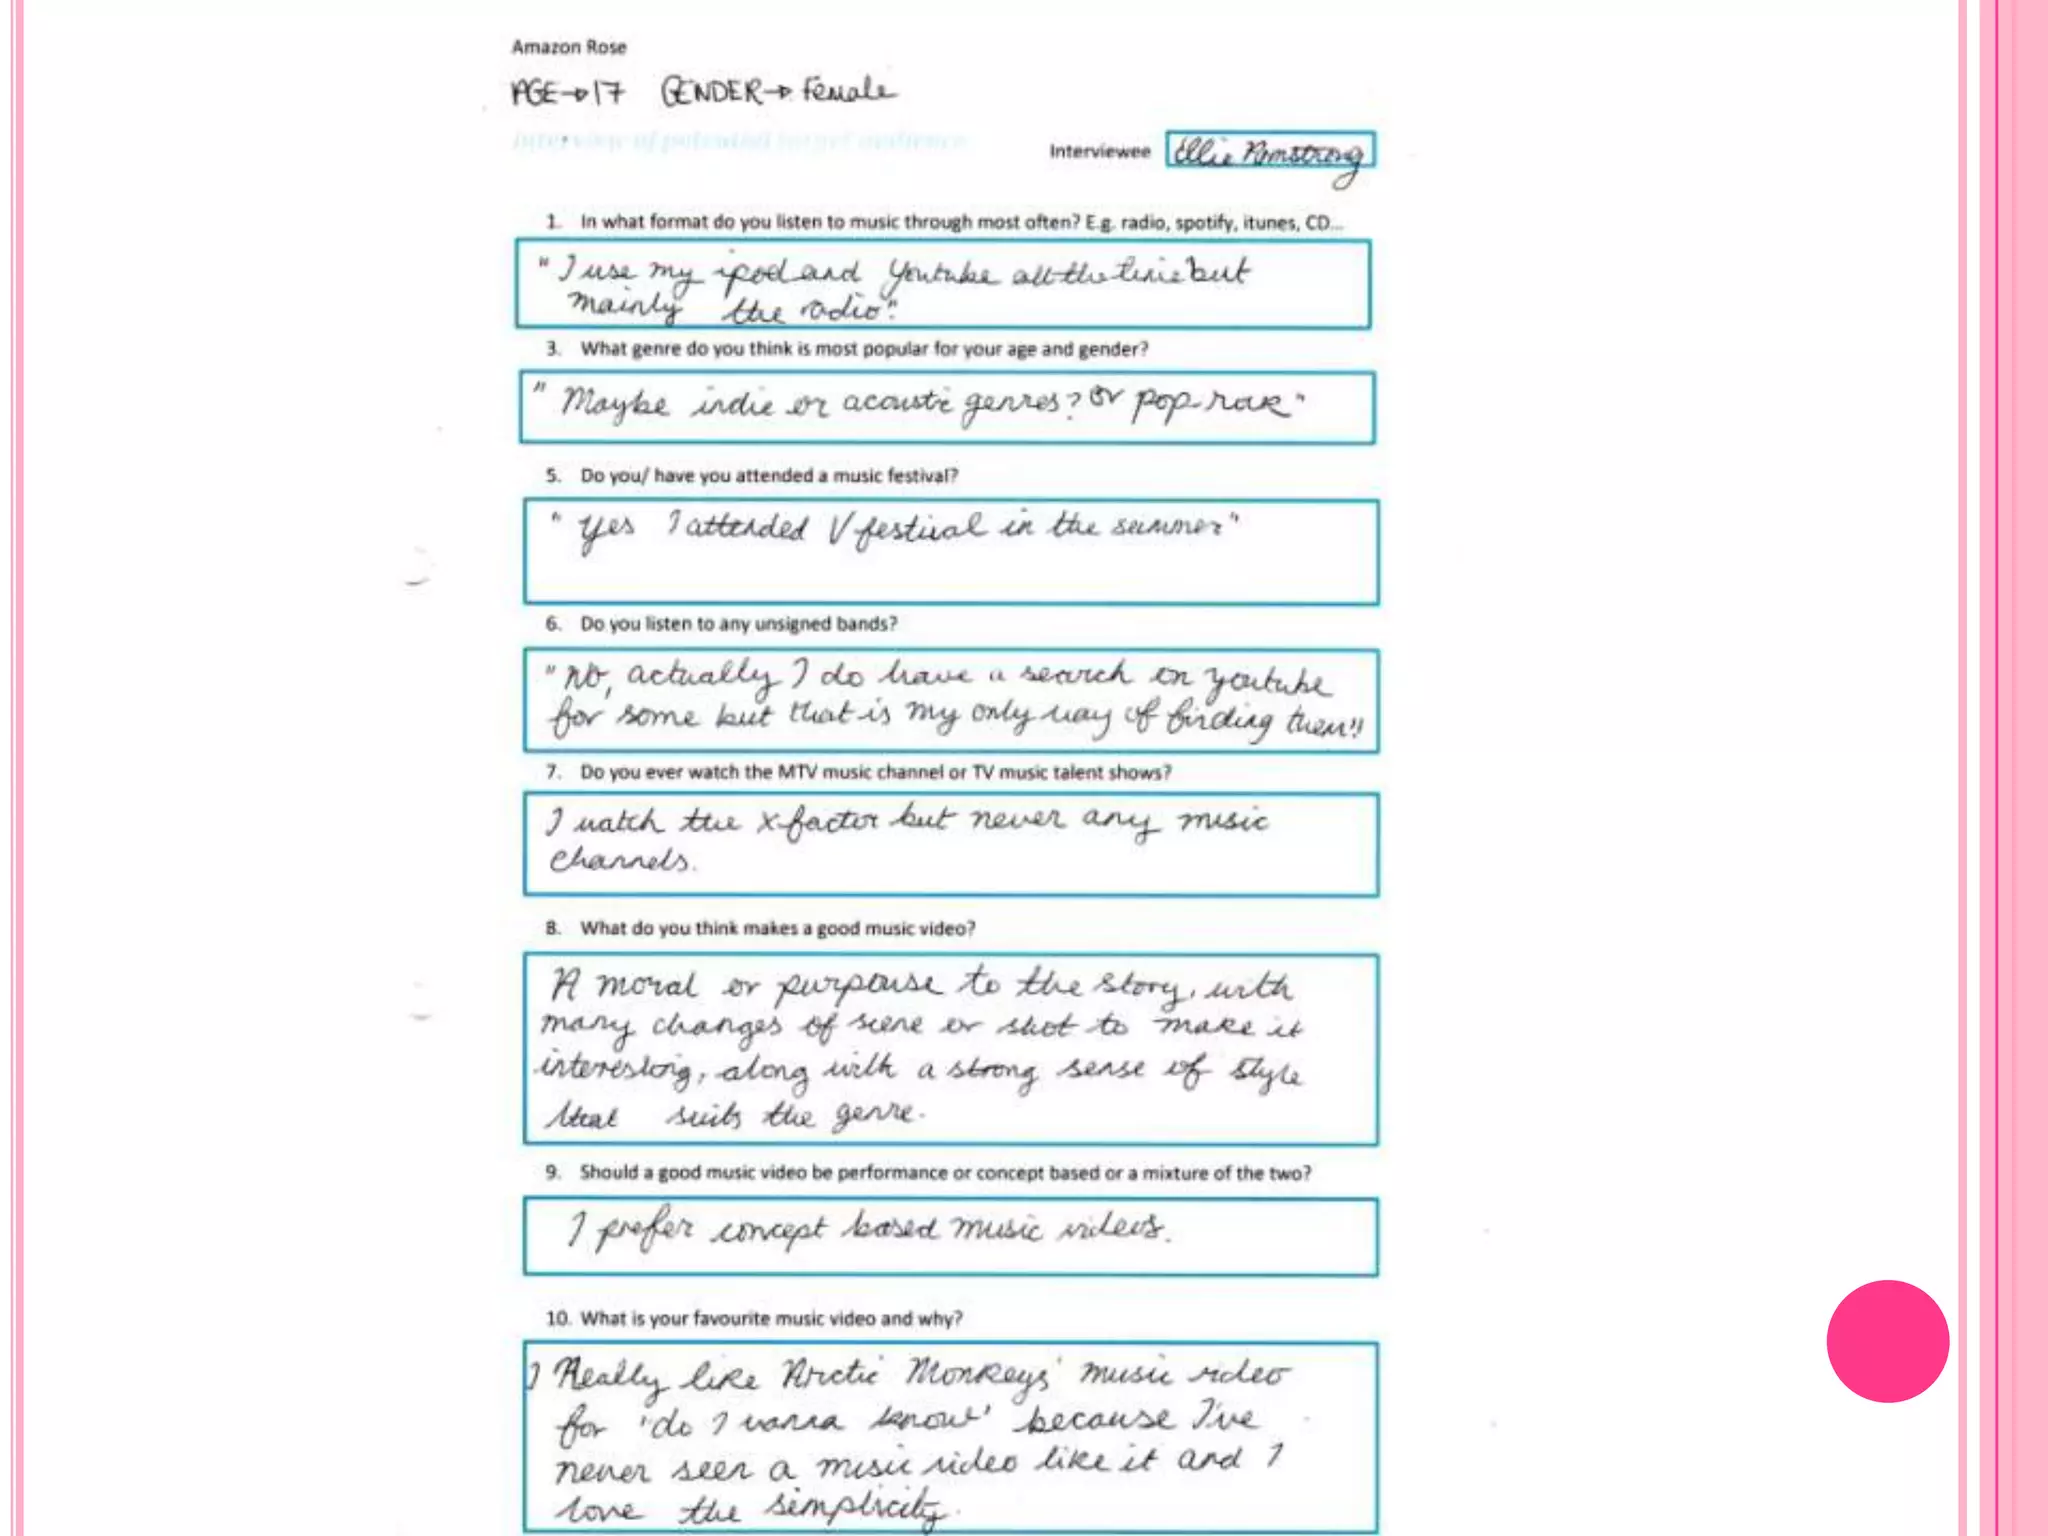 Amazon Rose
AGE→17 GENDER→Female
Interview of potential target audience
Interviewee Ellie Armstrong
1. In what format do you listen to music through most often? E.g. radio, spotify, itunes, CD...
"I use my ipod and Youtube all the time but
mainly the radio".
3. What genre do you think is most popular for your age and gender?
"Maybe indie or acoustic genres? Or pop-rock"
5. Do you/ have you attended a music festival?
"Yes I attended V festival in the summer"
6. Do you listen to any unsigned bands?
"No, actually I do have a search on youtube
for some but that is my only way of finding them"
7. Do you ever watch the MTV music channel or TV music talent shows?
I watch the x factor but never any music
channels.
8. What do you think makes a good music video?
A moral or purpouse to the story, with
many changes of scene or shot to make it
interesting, along with a strong sense of style
that suits the genre.
9. Should a good music video be performance or concept based or a mixture of the two?
I prefer concept based music videos.
10. What is your favourite music video and why?
I Really like Arctic Monkeys' music video
for 'do I wanna know' because I've
never seen a music video like it and I
love the simplicity.